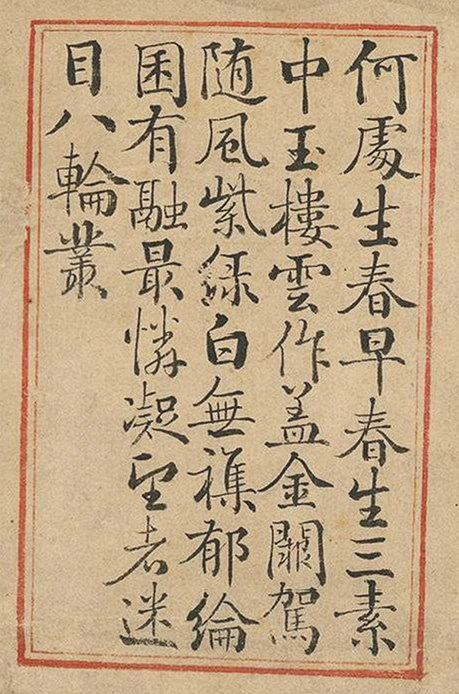 何處生春早春生三素
中玉樓雲作盖金闕駕
随風紫緑白無襍郁綸
囷有融最憐凝望者迷
目八輪叢